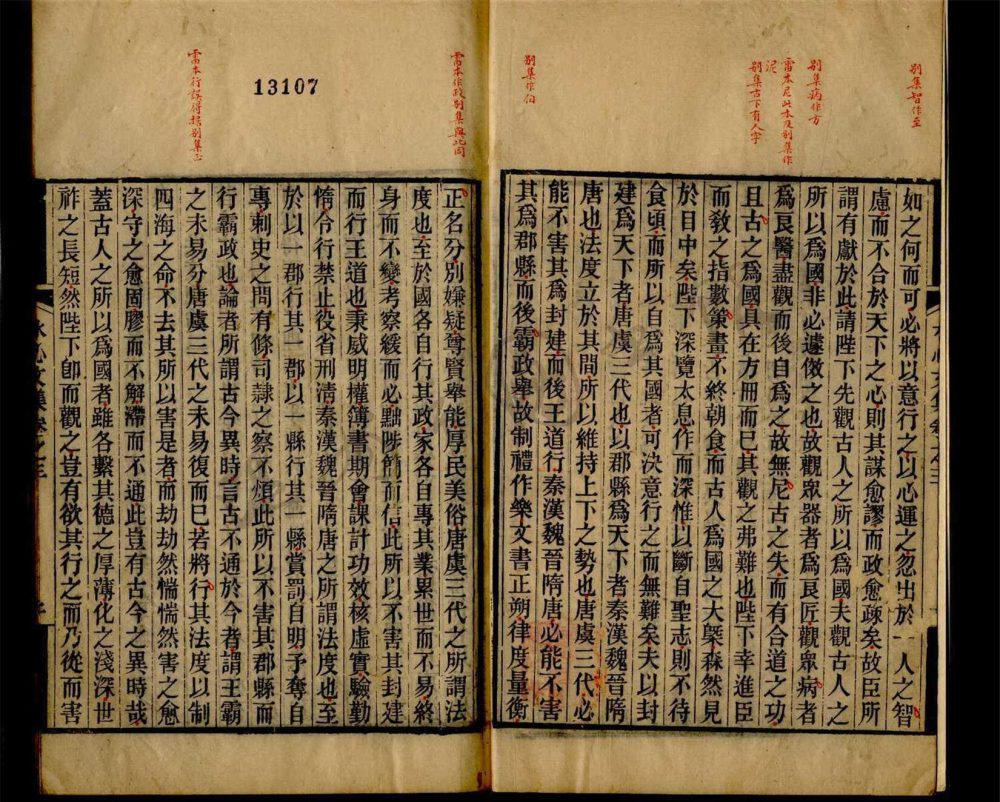 别集智作至
别集病作方
雷本尼此本及别集作
泥
别集古下有人字
别集作伯
如之何而可必將以意行之以心運之忽出於一人之智
慮而不合於天下之心則其謀愈謬而政愈疎矣故臣所
謂有獻於此請陛下先觀古人之所以爲國夫觀古人之
所以爲國非必遽倣之也故觀衆器者爲良匠觀衆病者
爲良醫盡觀而後自爲之故無尼古之失而有合道之功
且古之爲國具在方冊而已其觀之弗難也陛下幸進臣
而敎之指數策畫不終朝食而古人爲國之大槩森然見
於目中矣陛下深覽太息作而深惟以斷自聖志則不待
食頃而所以自爲其國者可決意行之而無難矣夫以封
建爲天下者唐虞三代也以郡縣爲天下者秦漢魏晉隋
唐也法度立於其間所以維持上下之勢也唐虞三代必
能不害其爲封建而後王道行秦漢魏晉隋唐必能不害
其爲郡縣而後霸政舉故制禮作樂文書正朔律度量衡
雷本作政别集與此同
13107
雷本行誤得據别集正
正名分別嫌疑尊賢舉能厚民美俗唐虞三代之所謂法
度也至於國各自行其政家各自專其業累世而不易終
身而不變考察緩而必黜陟簡而信此所以不害其封建
而行王道也秉威明權簿書期會課計功效核虛實驗勤
惰令行禁止役省刑清秦漢魏晉隋唐之所謂法度也至
於以一郡行其一郡以一縣行其一縣賞罰自明予奪自
專刺史之問有條司隷之察不煩此所以不害其郡縣而
行霸政也論者所謂古今異時言古不通於今者謂王霸
之未易分唐虞三代之未易復而已若將行其法度以制
四海之命不去其所以害是者而劫劫然惴惴然害之愈
深守之愈固膠而不解滯而不通此豈有古今之異時哉
蓋古人之所以爲國者雖各繫其德之厚薄化之淺深世
祚之長短然陛下卽而觀之豈有欲其行之而乃從而害
水心文集卷之三